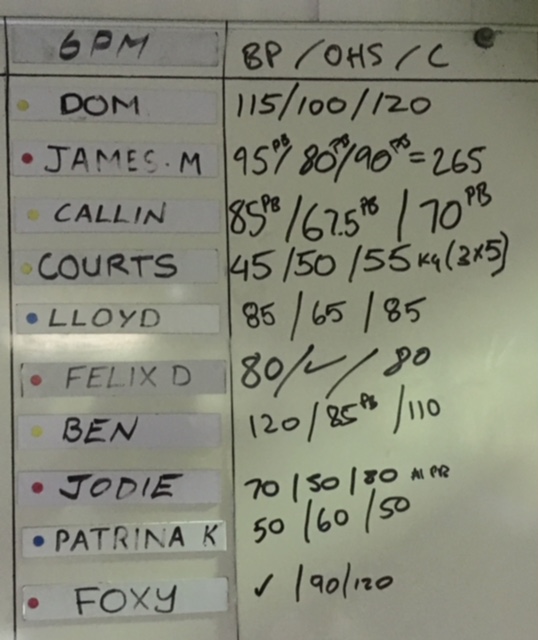 6PM BP / OHS / C
DOM 115/100/120
JAMES. M 95PB/80PB/90PB=265
CALLIN 85PB/67.5PB/70PB
COURTS 45/50/55 Kg (3x5)
LLOYD 85/65/85
FELIX D 80/✓/80
BEN 120/85PB/110
JODIE 70/50/80 PR
PATRINA K 50/60/50
FOXY ✓/90/120